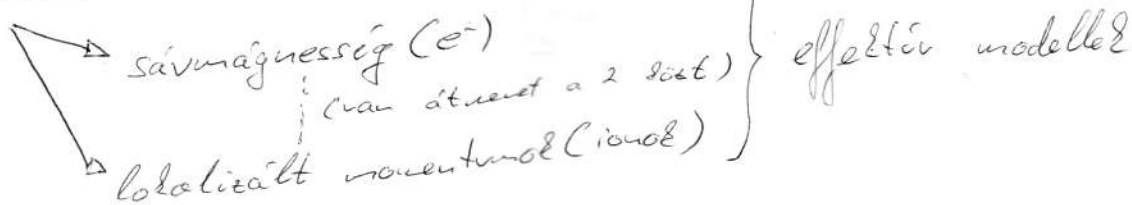 sávmágnesség (e⁻)
(van átmenet a 2 közt)
lokalizált momentumok (ionok)
effektív modellek